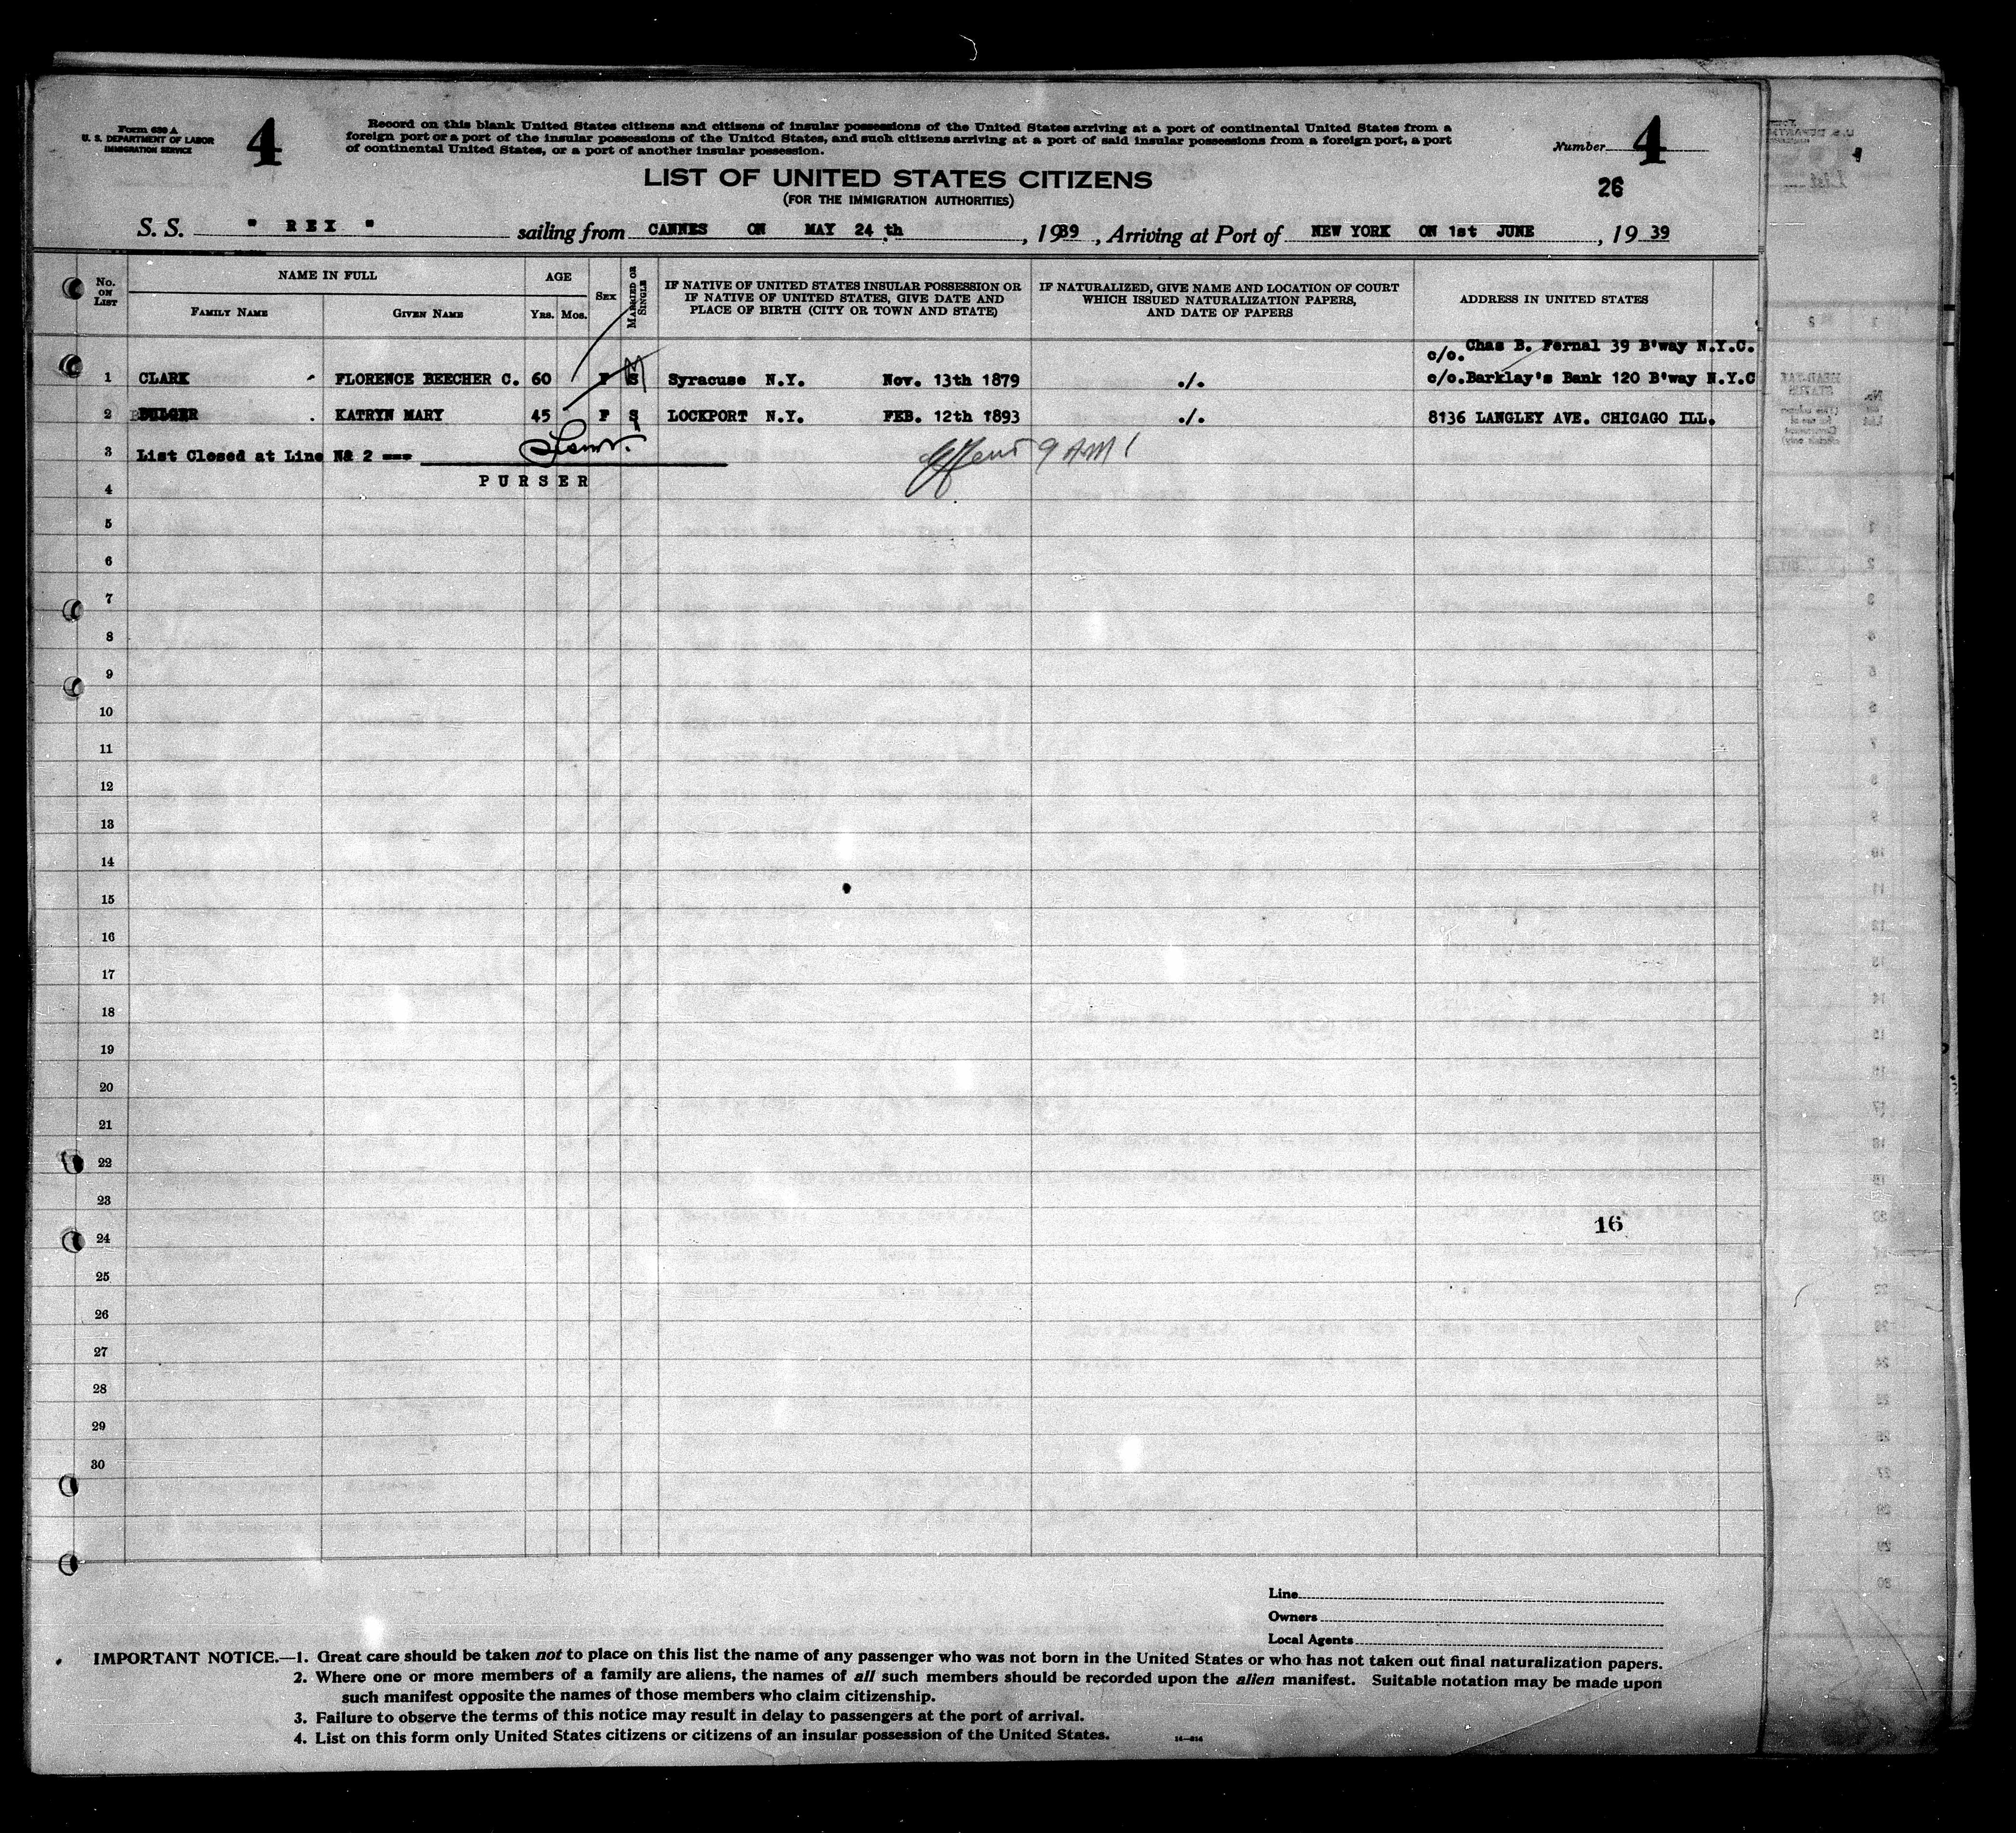 Form 630 A
U. S. DEPARTMENT OF LABOR
IMMIGRATION SERVICE
4
Record on this blank United States citizens and citizens of insular possessions of the United States arriving at a port of continental United States from a
foreign port or a port of the insular possessions of the United States, and such citizens arriving at a port of said insular possessions from a foreign port, a port
of continental United States, or a port of another insular possession.
Number 4
26
LIST OF UNITED STATES CITIZENS
(FOR THE IMMIGRATION AUTHORITIES)
S. S. " REX " sailing from CANNES ON MAY 24 th, 1939, Arriving at Port of NEW YORK ON 1st JUNE, 19 39
No. ON LIST
NAME IN FULL
FAMILY NAME GIVEN NAME
AGE
YRS. MOS.
SEX
MARRIED OR SINGLE
IF NATIVE OF UNITED STATES INSULAR POSSESSION OR
IF NATIVE OF UNITED STATES, GIVE DATE AND
PLACE OF BIRTH (CITY OR TOWN AND STATE)
IF NATURALIZED, GIVE NAME AND LOCATION OF COURT
WHICH ISSUED NATURALIZATION PAPERS,
AND DATE OF PAPERS
ADDRESS IN UNITED STATES
c/o. Chas B. Fernal 39 B'way N.Y.C.
1 CLARK FLORENCE BEECHER C. 60 F S Syracuse N.Y. Nov. 13th 1879 ./. c/o.Barklay's Bank 120 B'way N.Y.C
2 BULGER KATRYN MARY 45 F S LOCKPORT N.Y. FEB. 12th 1893 ./. 8136 LANGLEY AVE. CHICAGO ILL.
3 List Closed at Line No 2 9 AM
PURSER
4
5
6
7
8
9
10
11
12
13
14
15
16
17
18
19
20
21
22
23
16
24
25
26
27
28
29
30
Line
Owners
Local Agents
IMPORTANT NOTICE.—1. Great care should be taken not to place on this list the name of any passenger who was not born in the United States or who has not taken out final naturalization papers.
2. Where one or more members of a family are aliens, the names of all such members should be recorded upon the alien manifest. Suitable notation may be made upon
such manifest opposite the names of those members who claim citizenship.
3. Failure to observe the terms of this notice may result in delay to passengers at the port of arrival.
4. List on this form only United States citizens or citizens of an insular possession of the United States.